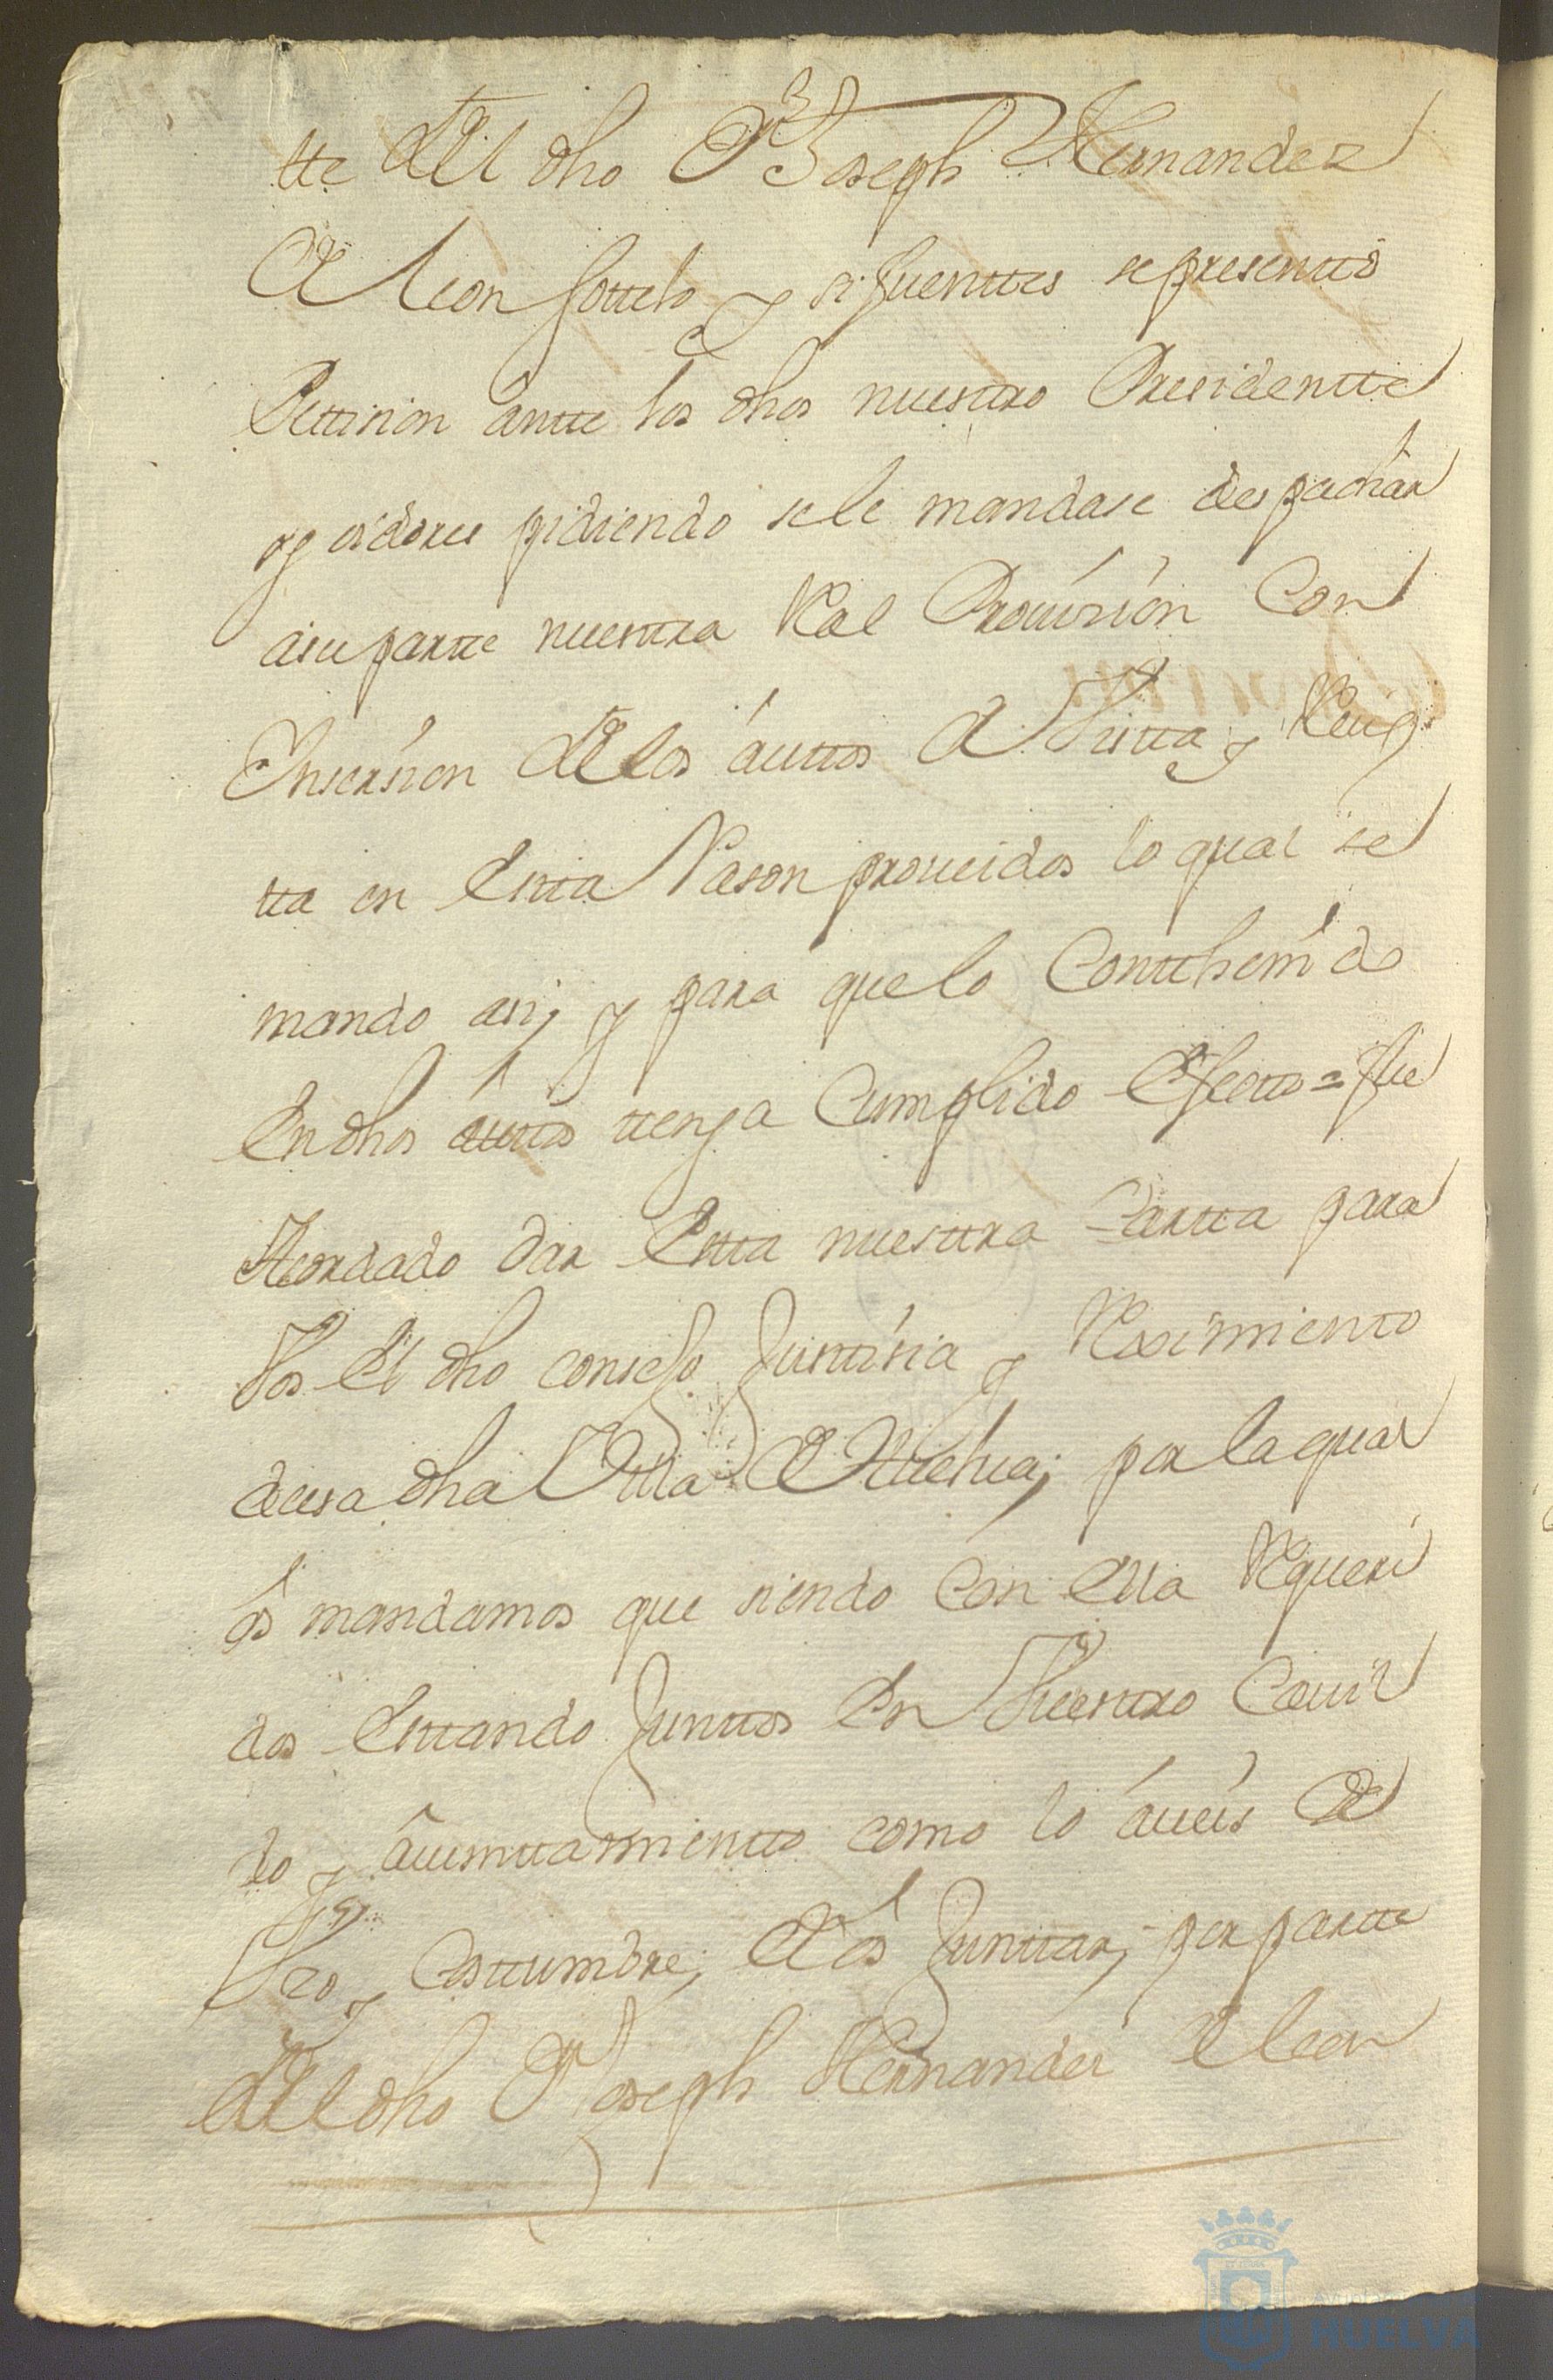 tte del dho Dn Joseph Hernandez
de leon sottelo y sifuenttes se presentto
Pettision antte los dhos nuesttro Presidentte
y oidores pidiendo se le mandase despachar
a su partte nuesttra Real Provision Con
Insersion de los auttos de Vistta y Revis
tta en Estta Rason proueidos lo qual se
mando asi; y para que lo Contthenido
En dhos auttos ttenga Cumplido Efectto = fue
Acordado dar Estta nuesttra Cartta para
Vos El dho consejo Justtisia y Reximiento
de esa dha Villa de Huelva; por la qual
os mandamos que siendo Con Ella Requeri
dos Esttando Junttos En Vuesttro Cauil
do y aiunttamientto como lo aueis de
Vso y Costtumbre; de os Junttar; por partte
del dho Dn Joseph Hernandez de leon
HUELVA